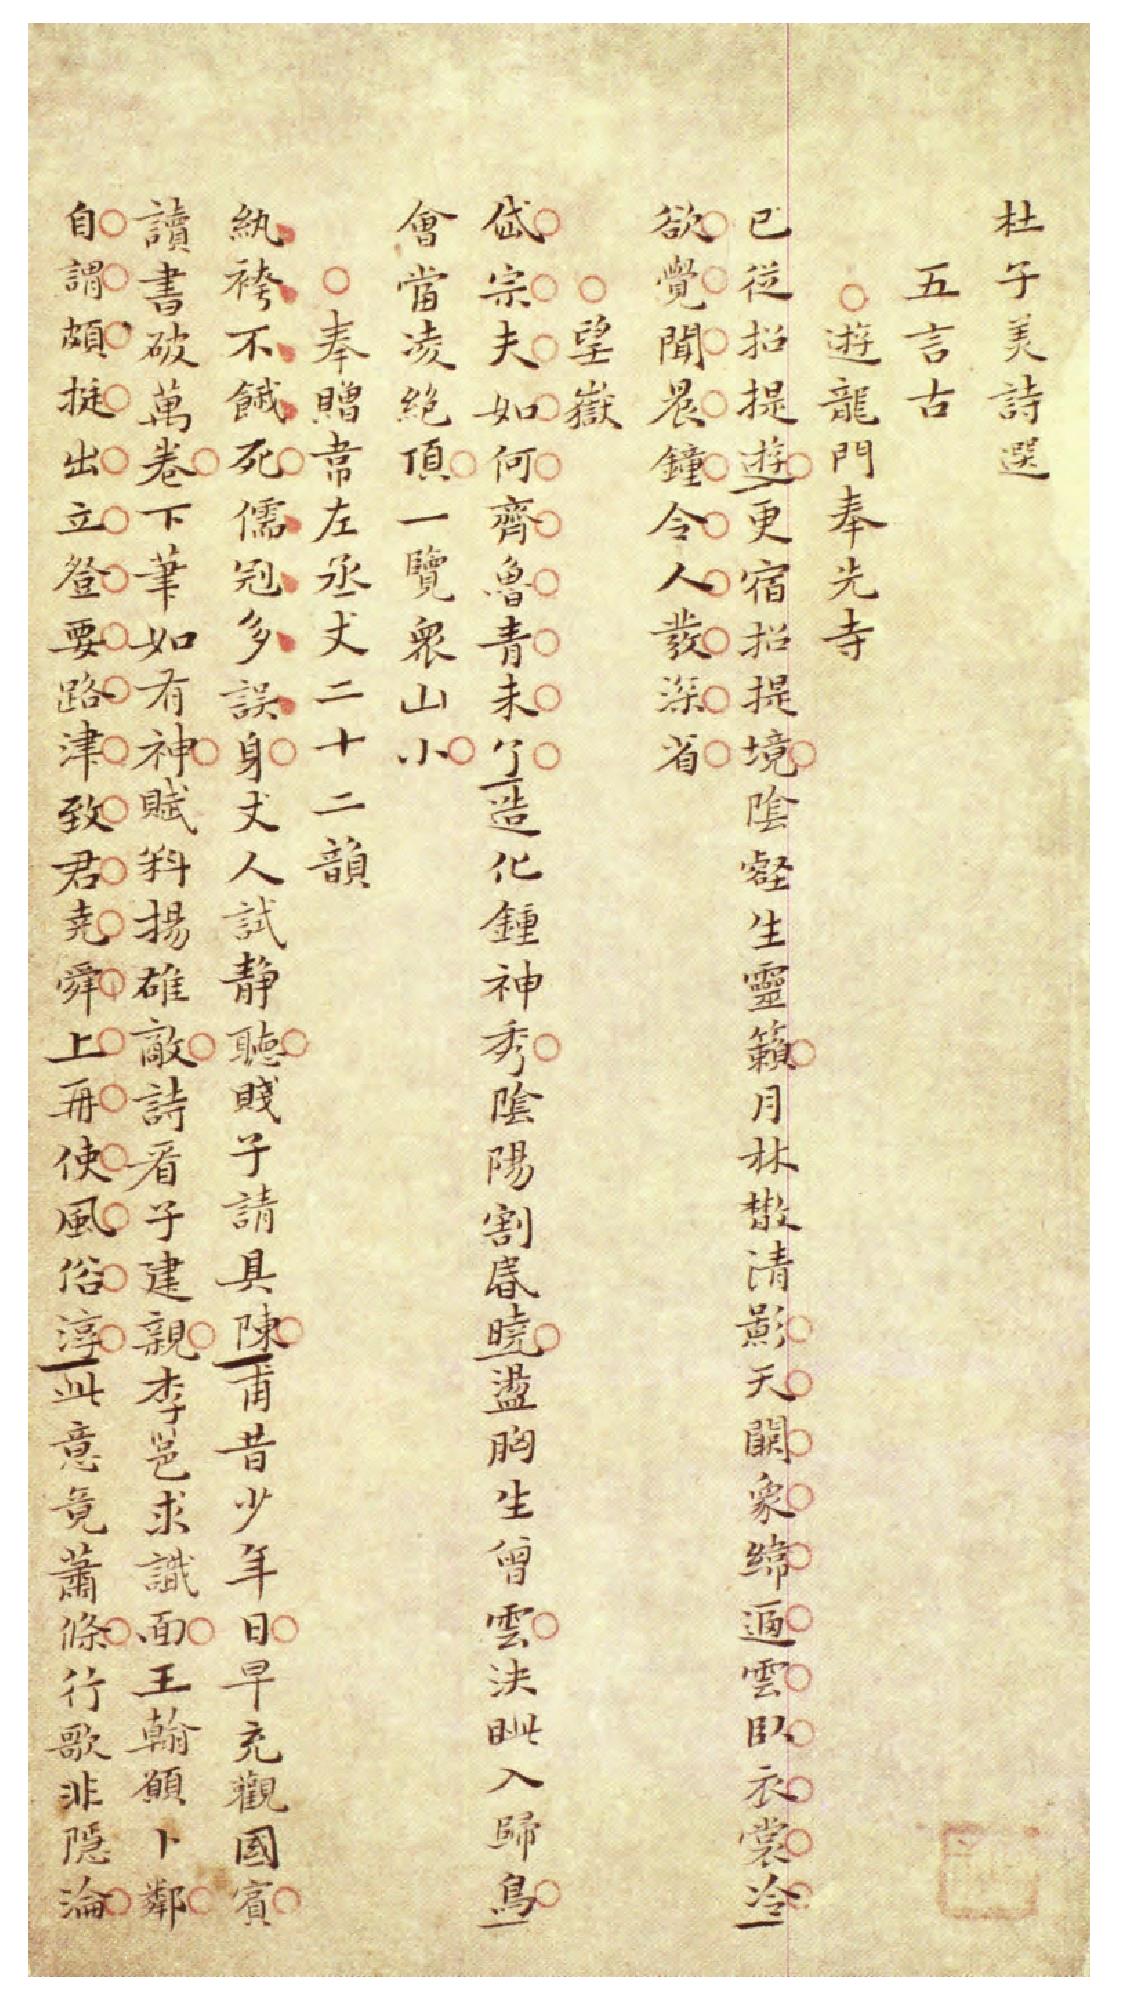 杜子美詩選
五言古
遊龍門奉先寺
已從招提遊更宿招提境陰壑生靈籟月林散清影天闕象緯逼雲臥衣裳冷
欲覺聞晨鐘令人發深省
望嶽
岱宗夫如何齊魯青未了造化鍾神秀陰陽割昏曉盪胸生曾雲決眥入歸鳥
會當凌絕頂一覽衆山小
奉贈韋左丞丈二十二韻
紈袴不餓死儒冠多誤身丈人試靜聽賤子請具陳甫昔少年日早充觀國賓
讀書破萬卷下筆如有神賦料揚雄敵詩看子建親李邕求識面王翰願卜鄰
自謂頗挺出立登要路津致君堯舜上再使風俗淳此意竟蕭條行歌非隱淪